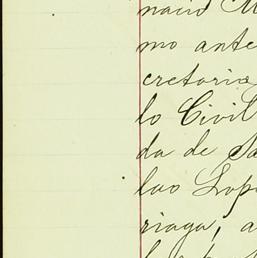 nacio M
mo ante
cretario
lo Civil
da de Sa
lao Lop
riaga, a